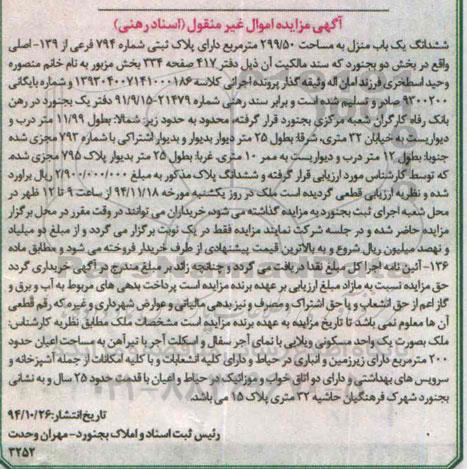 آگهی مزایده اموال غیر منقول (اسناد رهنی)
ششدانگ یک باب منزل به مساحت ۲۹۹/۵۰ مترمربع دارای پلاک ثبتی شماره ۷۹۴ فرعی از ۱۳۹- اصلی
واقع در بخش دو بجنورد که سند مالکیت آن ذیل دفتر ۴۱۷ صفحه ۳۳۴ بخش مزبور به نام خانم منصوره
وحید اسطخری فرزند امان اله وثیقه گذار پرونده اجرائی کلاسه ۱۳۹۳۰۴۰۰۷۱۴۱۰۰۰۱۸۶ و شماره بایگانی
۹۳۰۰۲۰۰ صادر و تسلیم شده است و برابر سند رهنی شماره ۲۱۴۷۹-۹۱/۹/۱۵ دفتر یک بجنورد در رهن
بانک رفاه کارگران شعبه مرکزی بجنورد قرار گرفته، محدود به حدود زیر: شمالا: بطول ۱۱/۹۹ متر درب و
دیواریست به خیابان ۳۲ متری، شرقا: بطول ۲۵ متر دیوار بدیوار و بدیوار اشتراکی با شماره ۷۹۳ مجزی شده،
جنوبا: بطول ۱۲ متر درب و دیواریست به ممر ۱۰ متری، غربا: بطول ۲۵ متر بدیوار پلاک ۷۹۵ مجزی شده،
که توسط کارشناس مورد ارزیابی قرار گرفته و ششدانگ پلاک مذکور به مبلغ ۲/۹۰۰/۰۰۰/۰۰۰ ریال براورد
شده و نظریه ارزیابی قطعی گردیده است ملک در روز یکشنبه مورخه ۹۴/۱۱/۱۸ از ساعت ۹ تا ۱۲ ظهر در
محل شعبه اجرای ثبت بجنورد به مزایده گذاشته می شود، خریداران می توانند در وقت مقرر در محل برگزار
مزایده حاضر شده و در جلسه شرکت نمایند مزایده فقط در یک نوبت برگزار می گردد و از مبلغ دو میلیاد
و نهصد میلیون ریال شروع و به بالاترین قیمت پیشنهادی از طرف خریدار فروخته می شود و مطابق ماده
۱۳۶- آئین نامه اجرا کل مبلغ نقدا دریافت می گردد و چنانچه زائد بر مبلغ مندرج در آگهی خریداری گردد
حق مزایده نسبت به مازاد مبلغ ارزیابی بر عهده برنده مزایده است پرداخت بدهی های مربوط به آب و برق و
گاز اعم از حق انشعاب و یا حق اشتراک و مصرف و نیز بدهی مالیاتی و عوارض شهرداری و غیره که رقم قطعی
آن ها معلوم نمی باشد تا تاریخ مزایده به عهده برنده مزایده است مشخصات ملک مطابق نظریه کارشناس:
ملک بصورت یک واحد مسکونی ویلایی با نمای آجر سفال و اسکلت آجر با تیرآهن به مساحت اعیان حدود
۲۰۰ مترمربع دارای زیرزمین و انباری در حیاط و دارای کلیه انشعابات و با کلیه امکانات از جمله آشپزخانه و
سرویس های بهداشتی و دارای دو اتاق خواب و موزائیک در حیاط و اعیان با قدمت حدود ۲۵ سال و به نشانی
بجنورد شهرک فرهنگیان حاشیه ۳۲ متری پلاک ۱۵ می باشد.
تاریخ انتشار: ۹۴/۱۰/۲۶
رئیس ثبت اسناد و املاک بجنورد - مهران وحدت
۳۲۵۲